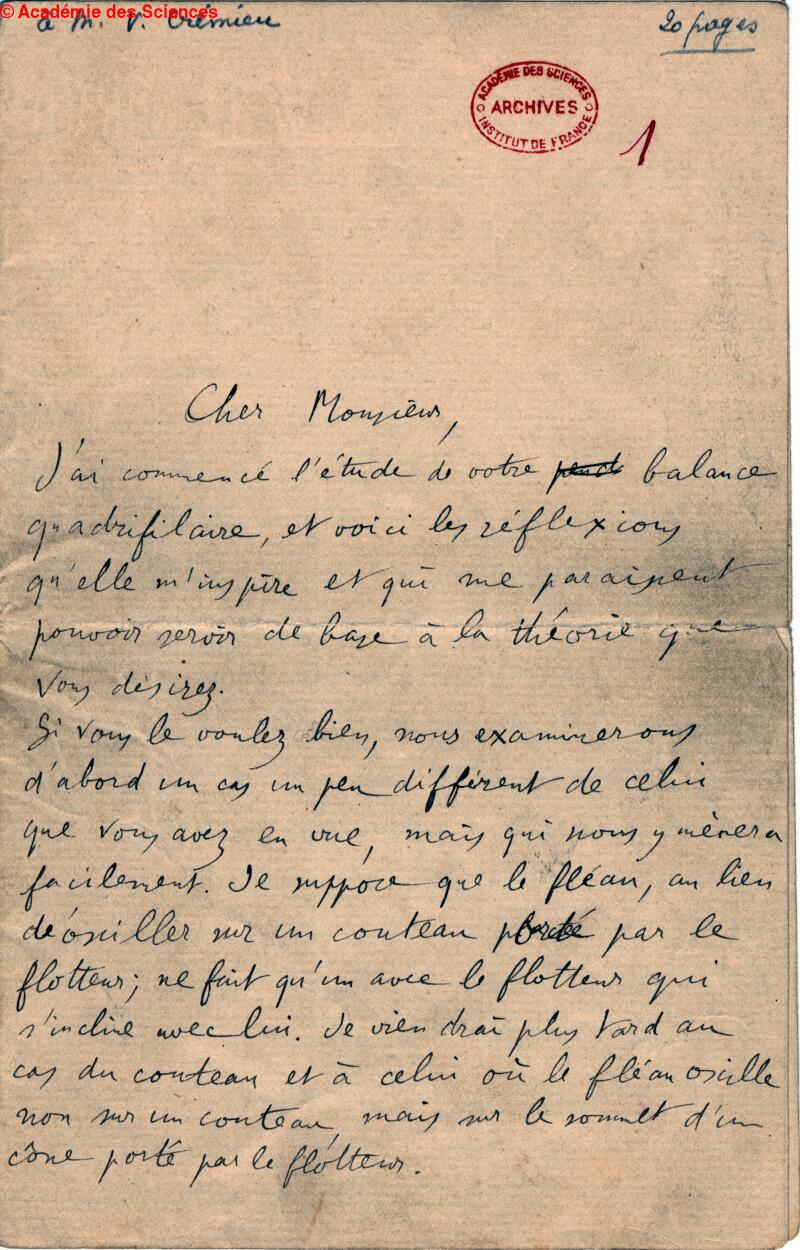 © Académie des Sciences
à M. V. Crémieu
20 pages
ACADÉMIE DES SCIENCES
ARCHIVES
INSTITUT DE FRANCE
1
Cher Monsieur,
J'ai commencé l'étude de votre pend balance
quadrifilaire, et voici les réflexions
qu'elle m'inspire et qui me paraissent
pouvoir servir de base à la théorie que
vous désirez.
Si vous le voulez bien, nous examinerons
d'abord un cas un peu différent de celui
que vous avez en vue, mais qui nous y mènera
facilement. Je suppose que le fléau, au lieu
d'osciller sur un couteau porté par le
flotteur; ne fait qu'un avec le flotteur qui
s'incline avec lui. Je viendrai plus tard au
cas du couteau et à celui où le fléau oscille
non sur un couteau, mais sur le sommet d'un
cône porté par le flotteur.